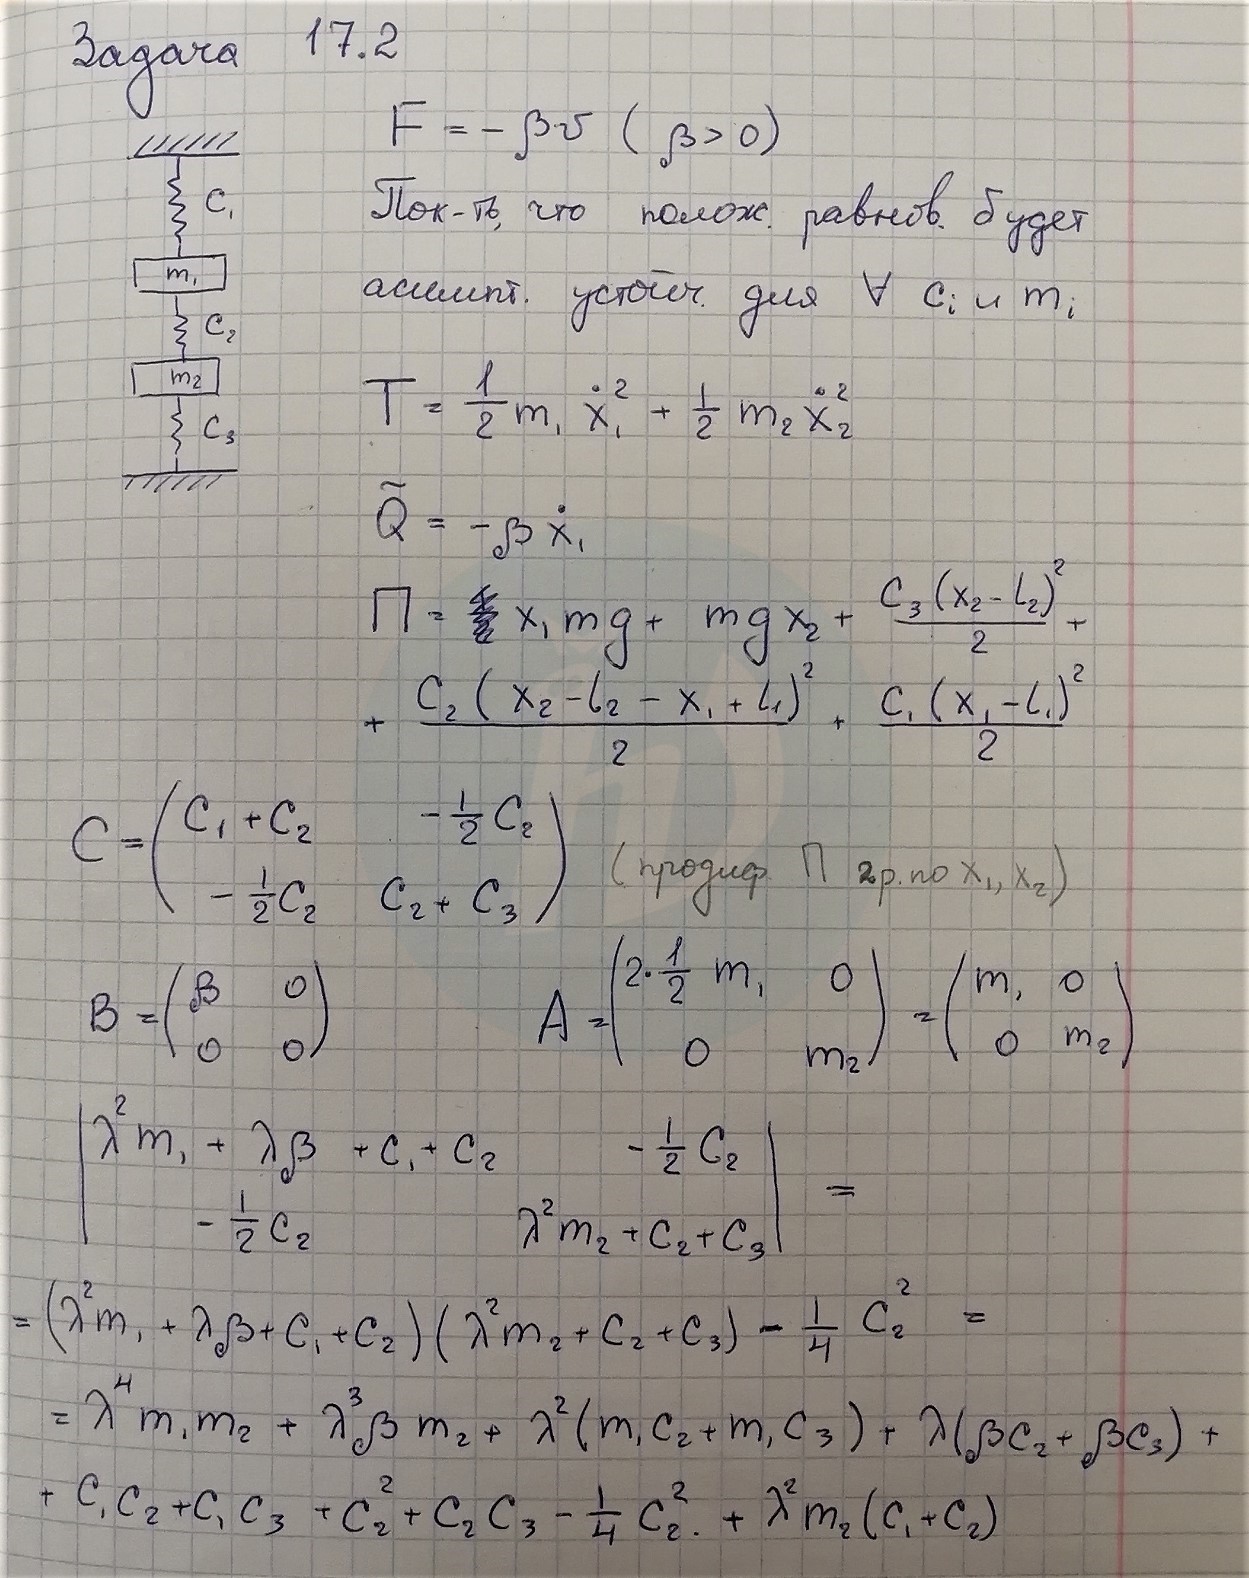 Задача 17.2
F = -βv (β>0)
Пок-ть, что полож. равнов. будет
асимпт. устойч. для ∀ cᵢ и mᵢ
C₁
m₁
C₂
m₂
C₃
T = 1/2 m₁ ẋ₁² + 1/2 m₂ ẋ₂²
Q̃ = -βẋ₁
П = x₁mg + mgx₂ + C₃(x₂-L₂)²/2 +
+ C₂(x₂-L₂-x₁+L₁)²/2 + C₁(x₁-L₁)²/2
C = (C₁+C₂ -1/2C₂
-1/2C₂ C₂+C₃) (продиф. П 2р. по x₁, x₂)
B = (β 0 A = (2·1/2 m₁ 0 = (m₁ 0
0 0) 0 m₂) 0 m₂)
|λ²m₁ + λβ + C₁ + C₂ -1/2 C₂
-1/2 C₂ λ²m₂ + C₂ + C₃| =
= (λ²m₁ + λβ + C₁ + C₂)(λ²m₂ + C₂ + C₃) - 1/4 C₂² =
= λ⁴m₁m₂ + λ³βm₂ + λ²(m₁C₂ + m₁C₃) + λ(βC₂ + βC₃) +
+ C₁C₂ + C₁C₃ + C₂² + C₂C₃ - 1/4 C₂². + λ²m₂(C₁+C₂)